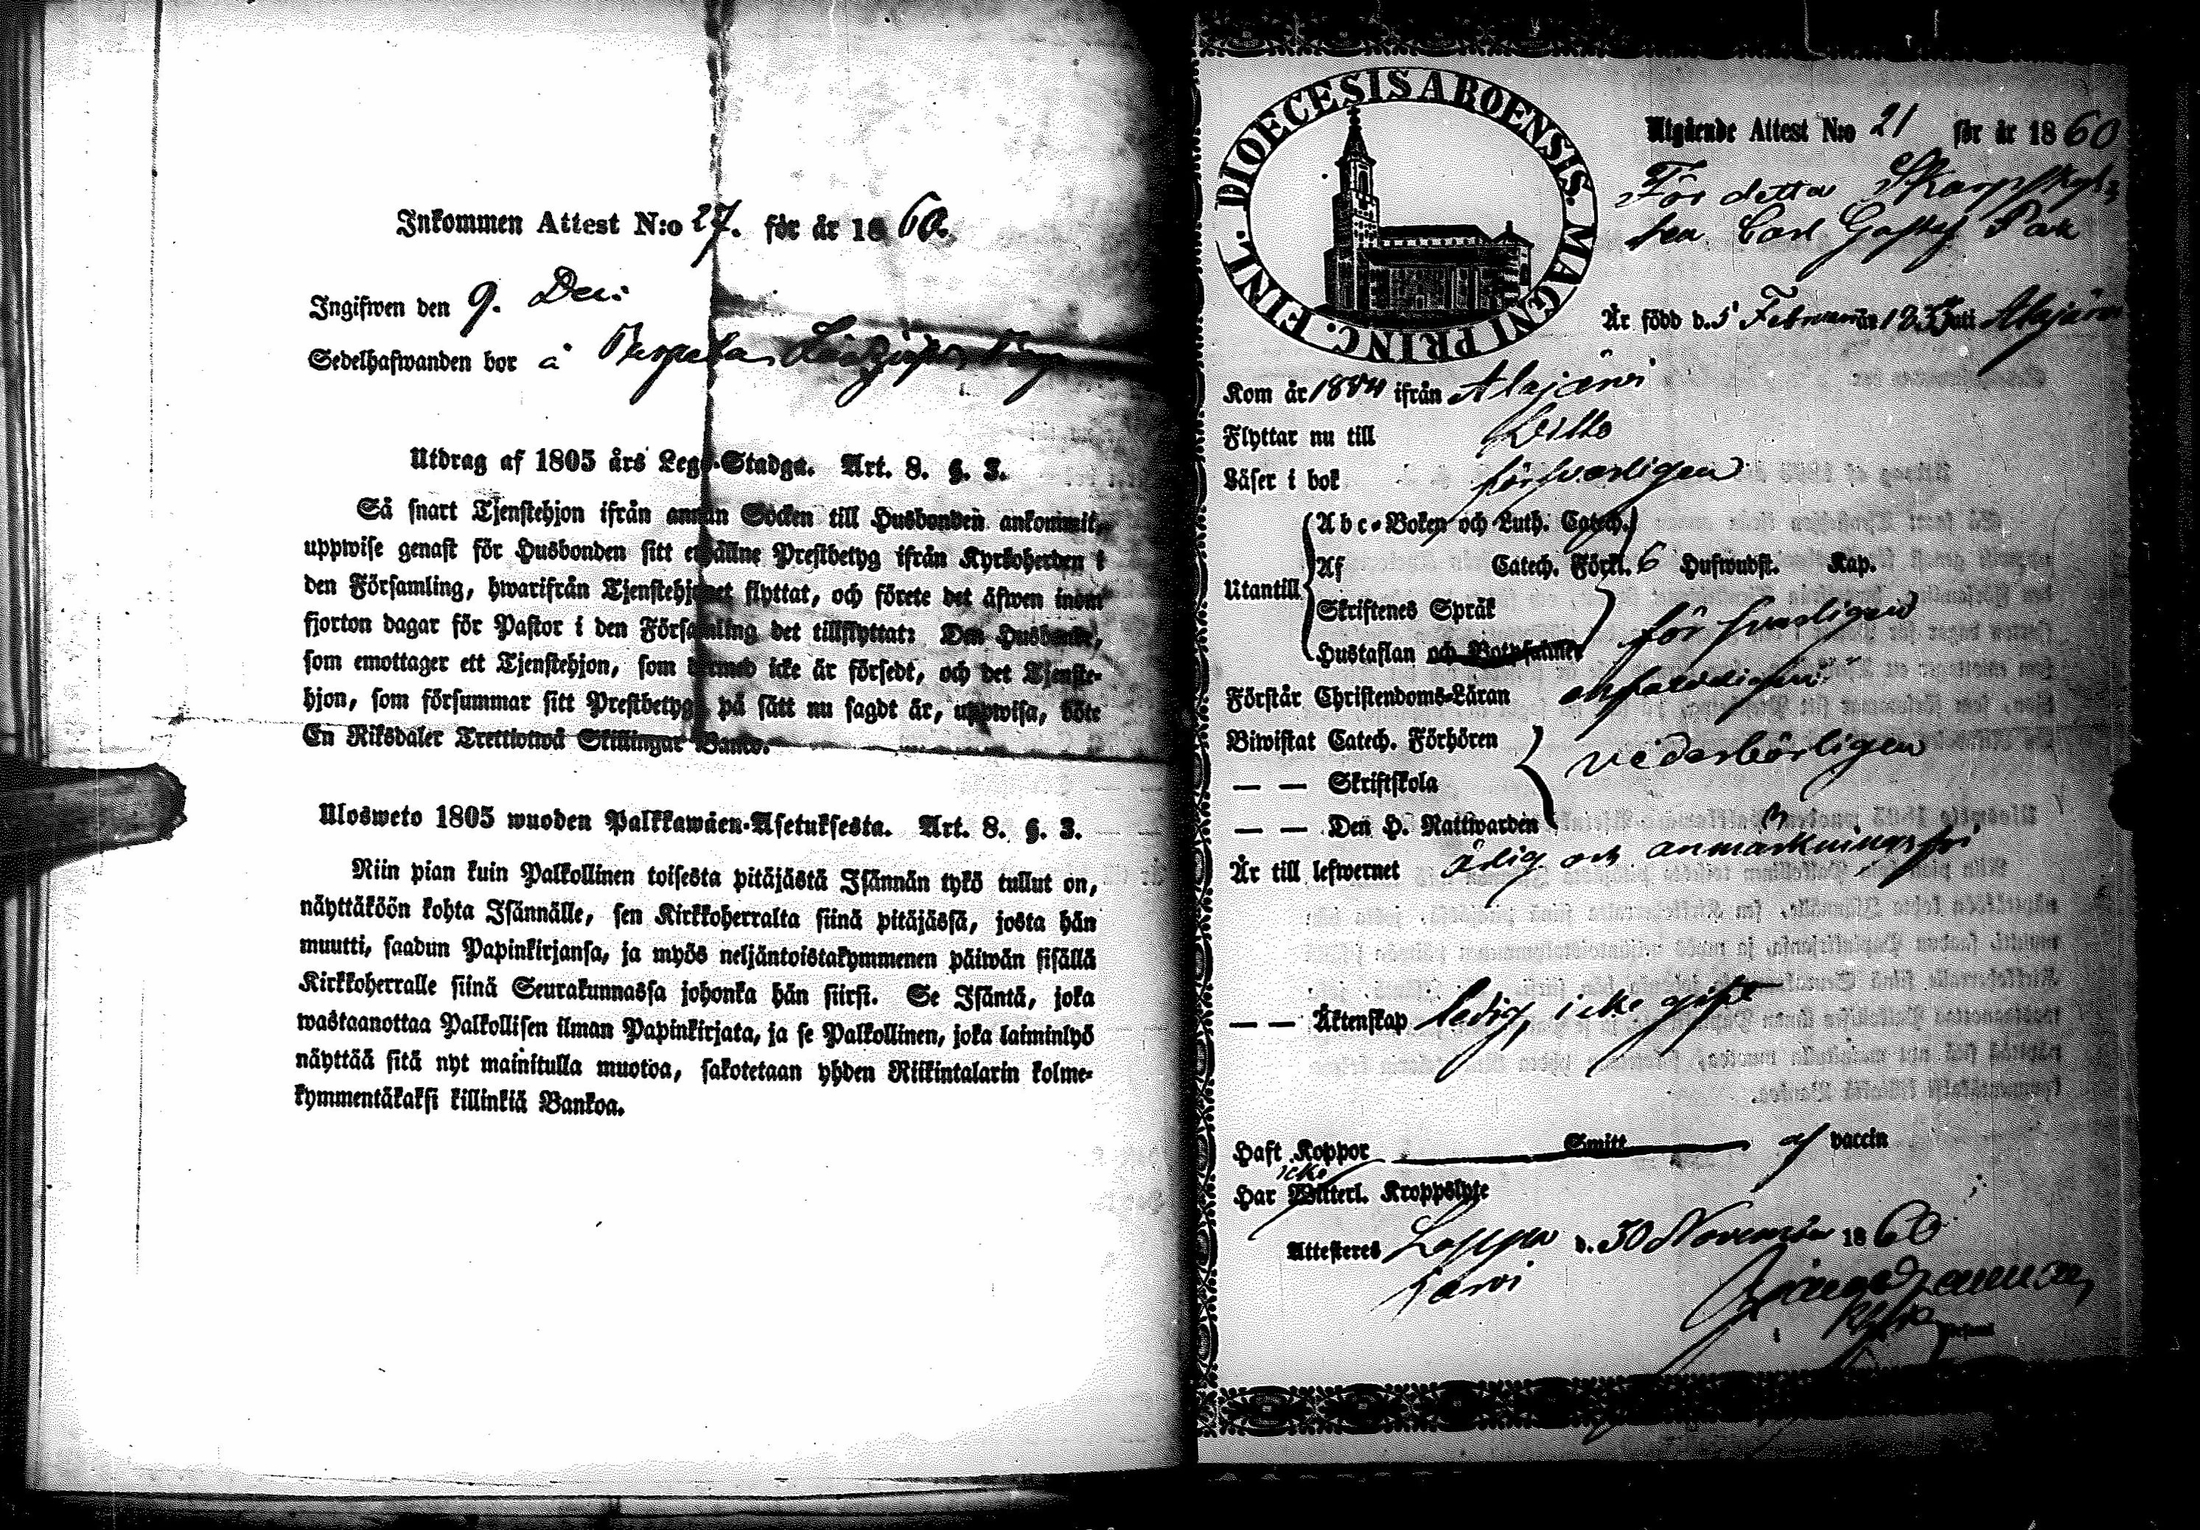 Inkommen Attest N:o 27. för år 1860.
Ingifwen den 9. Dec:
Sedelhafwanden bor å
Utdrag af 1805 års Lego-Stadga. Art. 8. §. 3.
Så snart Tjenstehjon ifrån annan Socken till Husbonden ankommit,
uppwise genast för Husbonden sitt erhållne Prestbetyg ifrån Kyrkoherden i
den Församling, hwarifrån Tjenstehjonet flyttat, och förete det äfwen inom
fjorton dagar för Pastor i den Församling det tillflyttat: Den Husbonde,
som emottager ett Tjenstehjon, som dermed icke är försedt, och det Tjenste-
hjon, som försummar sitt Prestbetyg på sätt nu sagdt är, uppwisa, böte
En Riksdaler Trettiotwå Skillingar Banko.
Ulosweto 1805 wuoden Palkkawäen-Asetuksesta. Art. 8. §. 3.
Niin pian kuin Palkollinen toisesta pitäjästä Isännän tykö tullut on,
näyttäköön kohta Isännälle, sen Kirkkoherralta siinä pitäjässä, josta hän
muutti, saadun Papinkirjansa, ja myös neljäntoistakymmenen päiwän sisällä
Kirkkoherralle siinä Seurakunnassa johonka hän siirsi. Se Isäntä, joka
wastaanottaa Palkollisen ilman Papinkirjata, ja se Palkollinen, joka laiminlyö
näyttää sitä nyt mainitulla muotoa, sakotetaan yhden Riikintalarin kolme-
kymmentäkaksi killinkiä Bankoa.
DIOECESIS ABOENSIS. MAGNI PRINC. FINL.
Utgående Attest N:o 21 för år 1860
För detta Skarpskyt-
ten Carl Gustaf
Är född d. 5 Februari 1835 uti Alajärvi
Kom år 1854 ifrån Alajärvi
Flyttar nu till Ditto
Läser i bok försvarligen
Abc-Boken och Luth. Catech.
Utantill Af Catech. Förkl. 6 Hufwudst. Kap.
Skriftenes Språk försvarligen
Hustaflan och Botpsalmer
Förstår Christendoms-Läran
Biwistat Catech. Förhören vederbörligen
— — Skriftskola
— — Den H. Nattwarden
Är till lefwernet ärlig och anmärkningsfri
— — Äktenskap ledig, icke gift
Haft Koppor Smitt af vaccin
icke
Har Witterl. Kroppslyte
Attesteres Lappa d. 30 November 1860
järvi